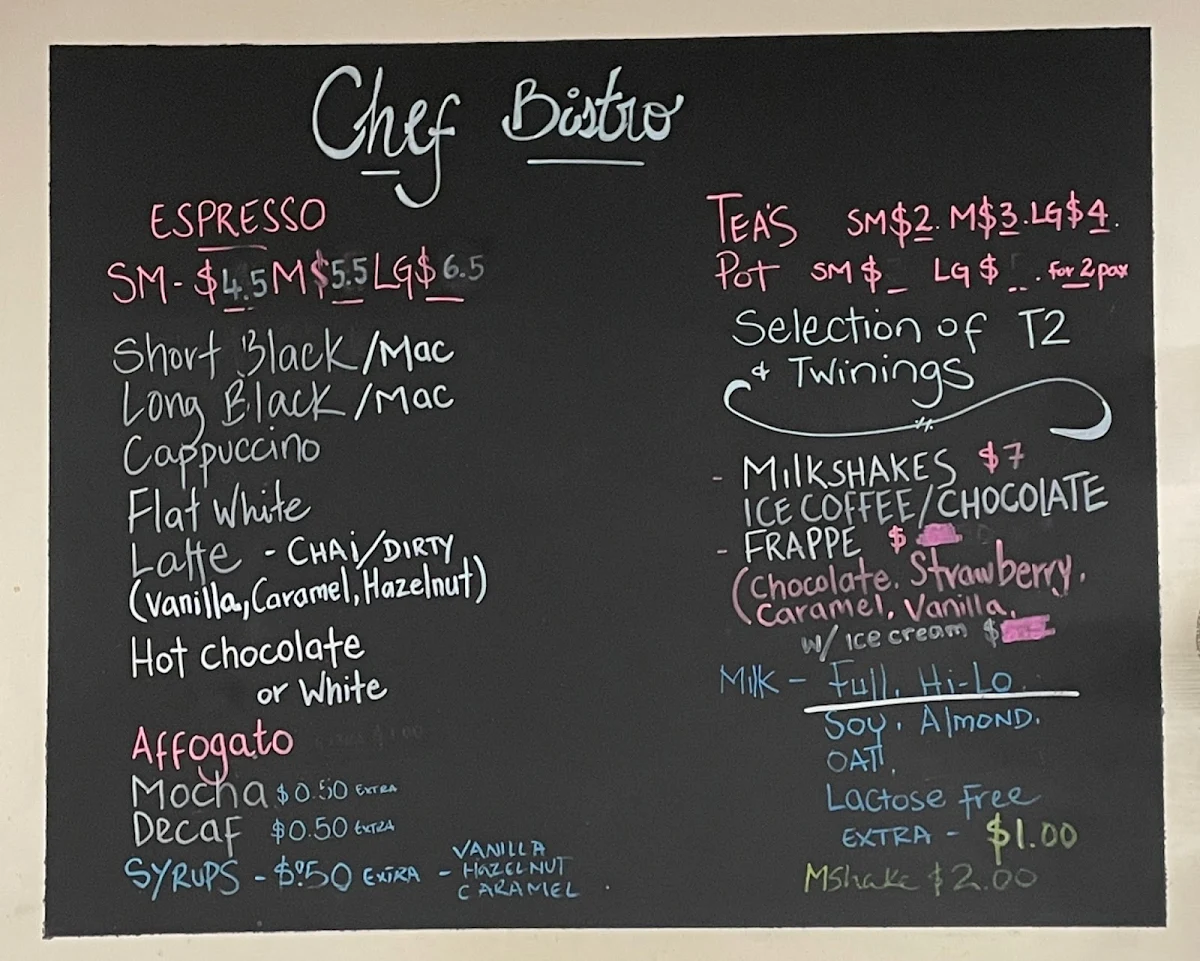 Chef Bistro
ESPRESSO
SM- $4.5 M $5.5 LG $6.5
Short Black/Mac
Long Black/Mac
Cappuccino
Flat White
Latte - CHAi/DIRTY
(Vanilla, Caramel, Hazelnut)
Hot chocolate
or White
Affogato
Mocha $0.50 EXTRA
Decaf $0.50 EXTRA
SYRUPS - $0.50 EXTRA - VANILLA
HAZELNUT
CARAMEL
TEA'S SM $2. M $3. LG $4.
Pot SM $ LG $ . for 2 pax
Selection of T2
& Twinings
- MilkSHAKES $7
ICE COFFEE/CHOCOLATE
- FRAPPE $
(Chocolate. Strawberry.
Caramel, Vanilla.
w/ Ice cream $
Milk - Full. Hi-Lo.
Soy. Almond.
OAT.
Lactose Free
EXTRA - $1.00
MShake $2.00